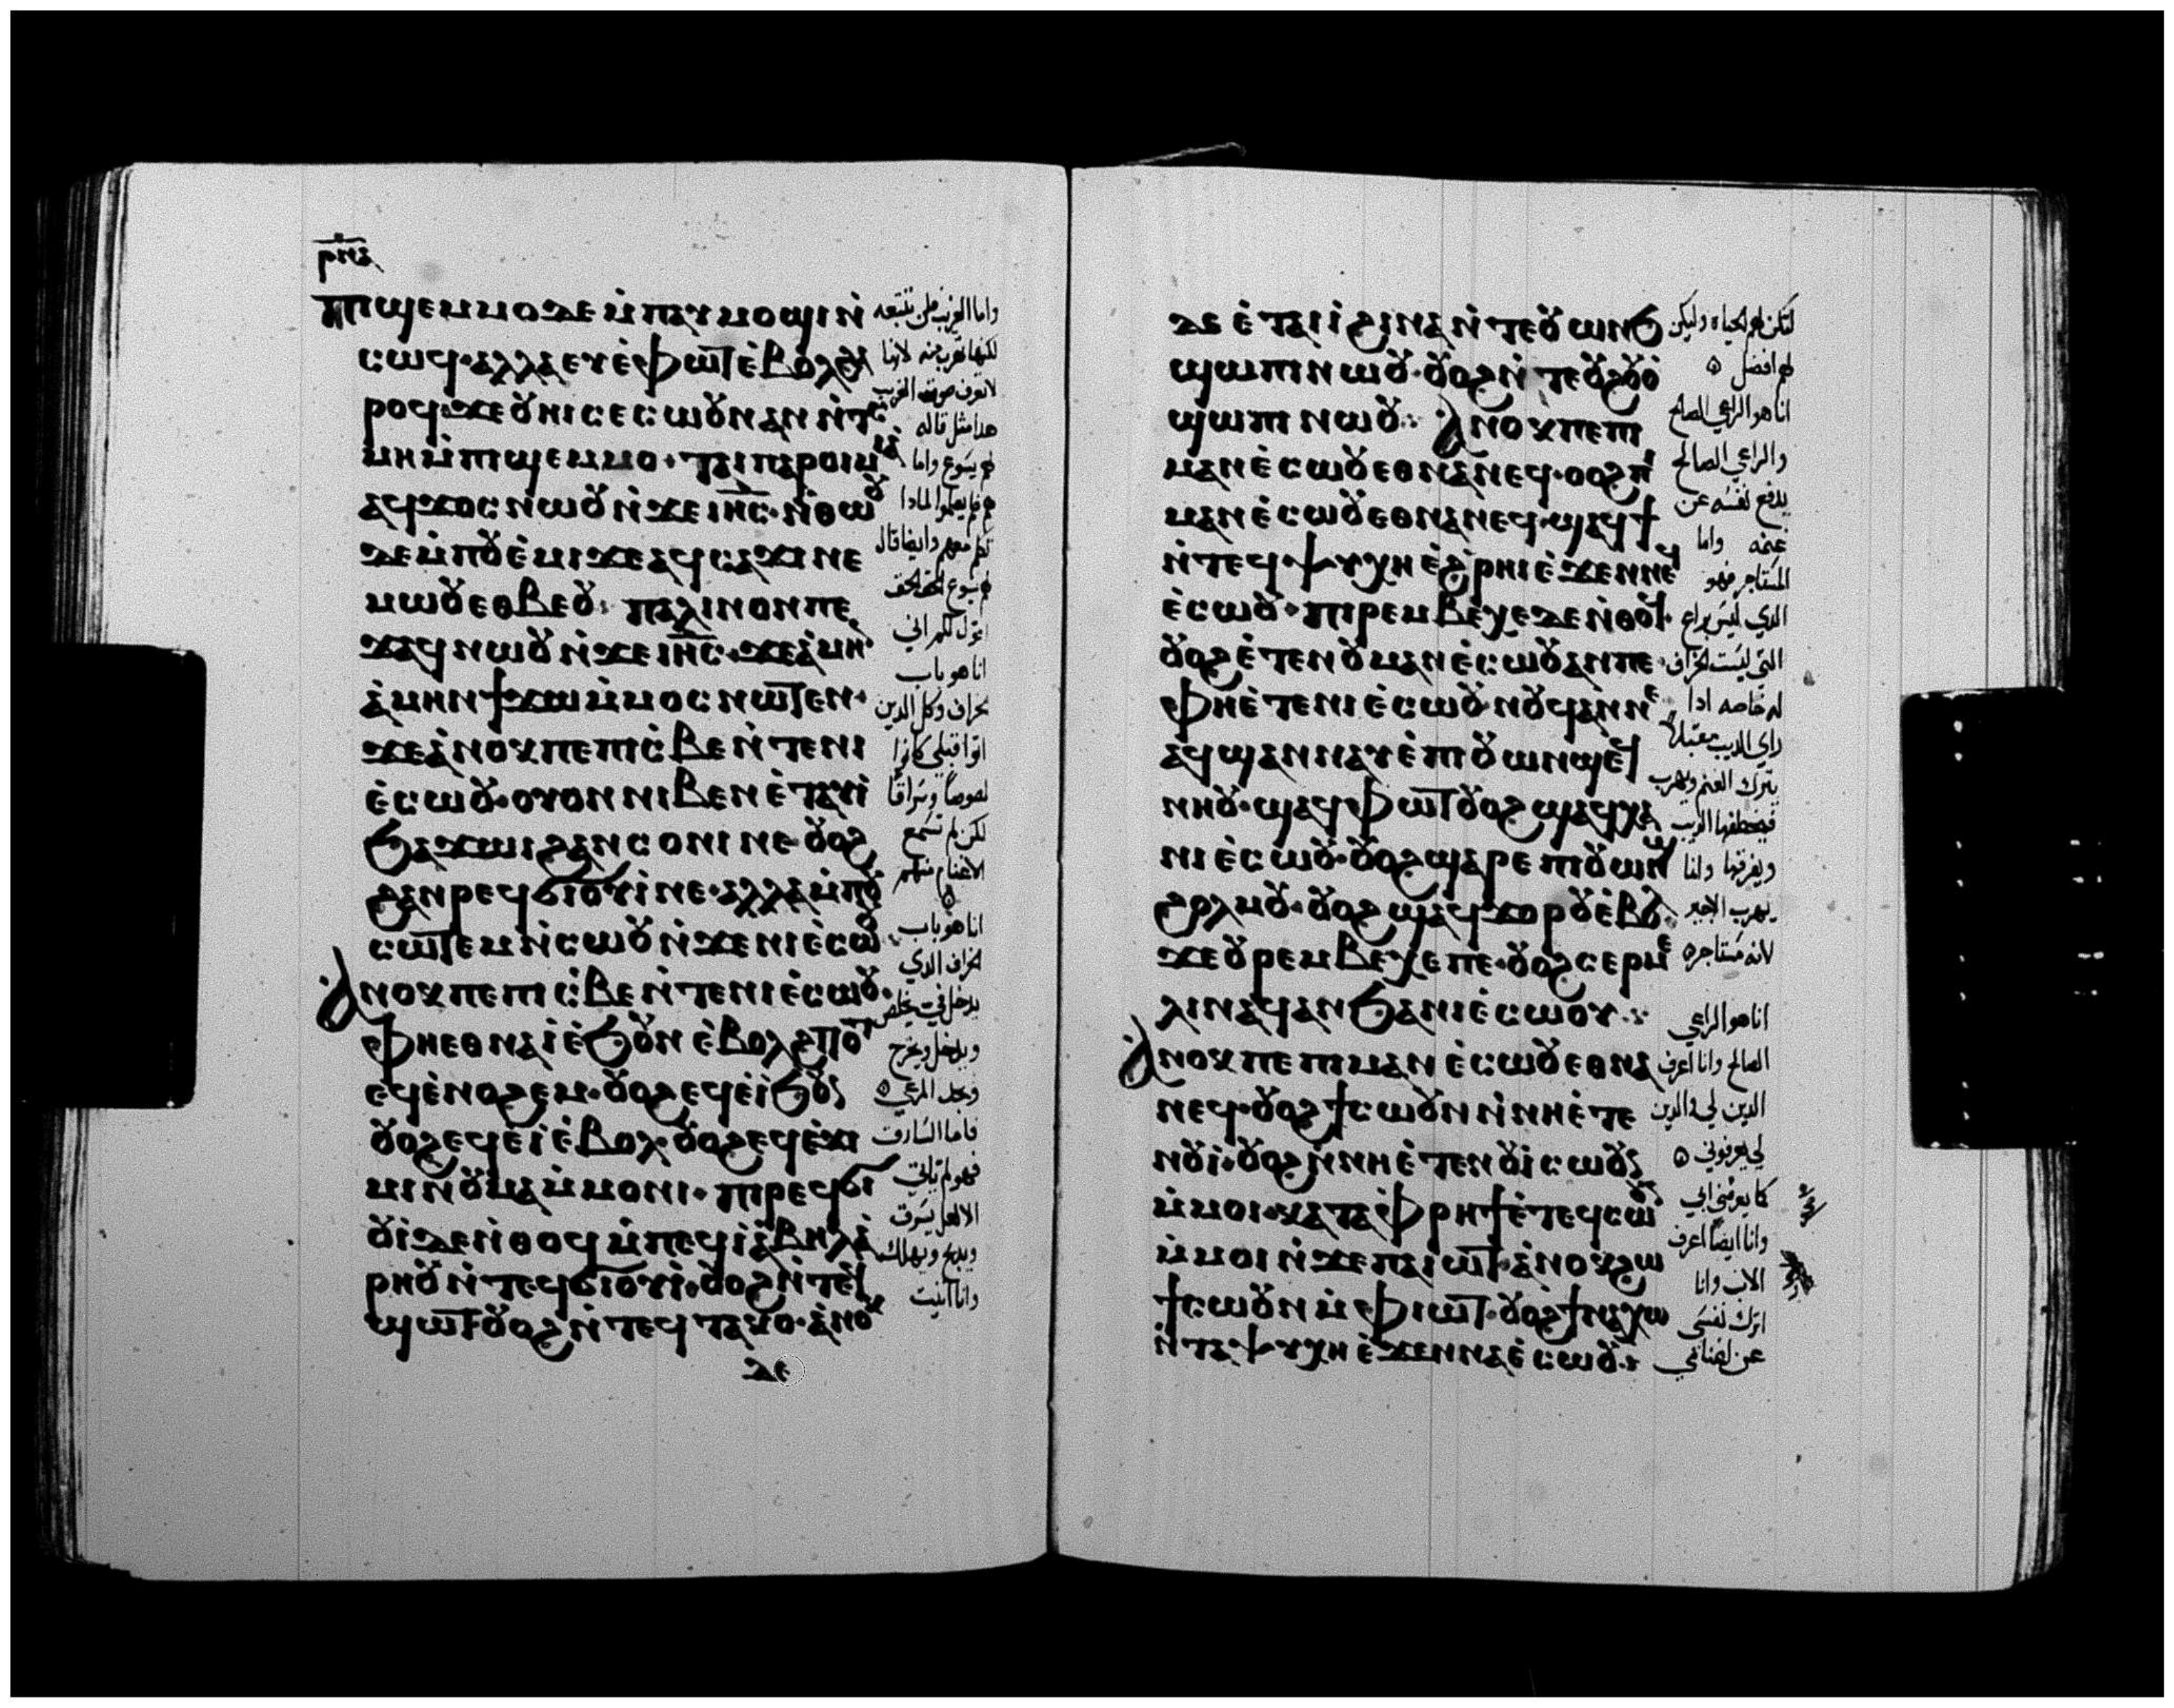 ⲣⲛⲁ
ⲡⲓϣⲉⲙⲙⲟ ⲇⲉ ⲙ̀ⲡⲁⲩⲙⲟϣⲓ ⲛ̀
ⲥⲱϥ· ⲁⲗⲗⲁ ⲉⲩⲉ̀ⲫⲱⲧ ⲉ̀ⲃⲟⲗ ϩⲁ
ⲣⲟϥ· ϫⲉ ⲟⲩⲏⲓ ⲥⲉⲥⲱⲟⲩⲛ ⲁⲛ ⲛ̀ⲧⲥ
ⲙⲏ ⲙ̀ⲡⲓϣⲉⲙⲙⲟ· ⲧⲁⲓⲡⲁⲣⲟⲓⲙⲓⲁ
ⲁϥϫⲟⲥ ⲛⲱⲟⲩ ⲛ̀ϫⲉ ⲓⲏⲥ· ⲛ̀ⲑⲱⲟⲩ
ⲇⲉ ⲙ̀ⲡⲟⲩⲉ̀ⲙⲓ ϫⲉ ⲁϥⲥⲁϫⲓ ⲛⲉ
ⲙⲱⲟⲩ ⲉⲑⲃⲉ ⲟⲩ· ⲡⲁⲗⲓⲛ ⲟⲛ ⲡⲉ
ϫⲁϥ ⲛⲱⲟⲩ ⲛ̀ϫⲉ ⲓⲏⲥ· ϫⲉ ⲁ̀ⲙⲏⲛ
ⲁ̀ⲙⲏⲛ ϯϫⲱ ⲙ̀ⲙⲟⲥ ⲛⲱⲧⲉⲛ·
ϫⲉ ⲁ̀ⲛⲟⲕ ⲡⲉ ⲡⲓⲥ̀ⲃⲉ ⲛ̀ⲧⲉ ⲛⲓ
ⲉ̀ⲥⲱⲟⲩ· ⲟⲩⲟⲛ ⲛⲓⲃⲉⲛ ⲉ̀ⲧⲁⲩⲓ̀
ϧⲁϫⲱⲓ ϩⲁⲛⲥⲟⲛⲓ ⲛⲉ ⲟⲩⲟϩ
ϩⲁⲛⲣⲉϥϭⲓⲟⲩⲓ̀ ⲛⲉ· ⲁⲗⲗⲁ ⲙ̀ⲡⲟⲩ
ⲥⲱⲧⲉⲙ ⲛ̀ⲥⲱⲟⲩ ⲛ̀ϫⲉ ⲛⲓⲉ̀ⲥⲱⲟⲩ·
ⲁ̀ⲛⲟⲕ ⲡⲉ ⲡⲓⲥ̀ⲃⲉ ⲛ̀ⲧⲉ ⲛⲓⲉ̀ⲥⲱⲟⲩ·
ⲫⲏ ⲉⲑⲛⲁⲓ̀ ⲉ̀ϧⲟⲩⲛ ⲉ̀ⲃⲟⲗ ϩⲓⲧⲟⲧ
ⲉϥⲉ̀ⲛⲟϩⲉⲙ· ⲟⲩⲟϩ ⲉϥⲉ̀ⲓ̀ ϧⲟⲩⲛ
ⲟⲩⲟϩ ⲉϥⲉ̀ⲓ̀ ⲉ̀ⲃⲟⲗ· ⲟⲩⲟϩ ⲉϥⲉ̀ϫⲓ
ⲙⲓ ⲛ̀ⲟⲩⲙⲁ ⲙ̀ⲙⲟⲛⲓ· ⲡⲓⲣⲉϥϭⲓ
ⲟⲩⲓ̀ ⲇⲉ ⲛ̀ⲑⲟϥ ⲙ̀ⲡⲉϥⲓ̀ ⲉⲃⲏⲗ ⲁ̀
ⲣⲏⲟⲩ ⲛ̀ⲧⲉϥϭⲓⲟⲩⲓ̀· ⲟⲩⲟϩ ⲛ̀ⲧⲉϥ
ϣⲱⲧ ⲟⲩⲟϩ ⲛ̀ⲧⲉϥⲧⲁⲕⲟ· ⲁ̀ⲛⲟⲕ
ⲇⲉ
واما الغريب فلن تتبعه
لكنها تهرب منه لانها
لا تعرف صوت الغريب
هدا مثل قاله
لهم يسوع واما
هم فلم يعلموا لمادا
كلمهم وايضا قال
لهم يسوع الحق الحق
اقول لكم اني
انا هو باب
الخراف وكل الدين
اتوا قبلي كانوا
لصوصاً وسراقاً
لكن لم تسمع
الاغنام منهم
انا هو باب
الخراف الدي
يدخل في يخلص
ويدخل ويخرج
ويجد المرعي
فاما السارق
فهو لم ياتي
الا لعل يسرق
ويدبح ويهلك
وانا اتيت
ⲇⲉ ⲉ̀ⲧⲁⲓⲓ̀ ϩⲓⲛⲁ ⲛ̀ⲧⲉ ⲟⲩⲱⲛϧ
ϣⲱⲡⲓ ⲛⲱⲟⲩ· ⲟⲩⲟϩ ⲛ̀ⲧⲉ ⲟⲩϩⲟⲩⲟ̀
ϣⲱⲡⲓ ⲛⲱⲟⲩ· ⲁ̀ⲛⲟⲕ ⲡⲉ ⲡⲓ
ⲙⲁⲛⲉ̀ⲥⲱⲟⲩ ⲉⲑⲛⲁⲛⲉϥ· ⲟⲟϩ ⲡⲓ
ⲙⲁⲛⲉ̀ⲥⲱⲟⲩ ⲉⲑⲛⲁⲛⲉϥ· ϣⲁϥϯ
ⲛ̀ⲧⲉϥⲯⲩⲭⲏ ⲉ̀ϩⲣⲏⲓ ⲉ̀ϫⲉⲛ ⲛⲉϥ
ⲉ̀ⲥⲱⲟⲩ· ⲡⲓⲣⲉⲙⲃⲉⲭⲉ ⲇⲉ ⲛ̀ⲑⲟϥ·
ⲟⲩⲟϩ ⲉ̀ⲧⲉ ⲛ̀ⲟⲩⲙⲁⲛⲉ̀ⲥⲱⲟⲩ ⲁⲛ ⲡⲉ·
ⲫⲏ ⲉ̀ⲧⲉ ⲛⲓⲉ̀ⲥⲱⲟⲩ ⲛⲟⲩϥ ⲁⲛ ⲛⲉ
ⲁϥϣⲁⲛⲛⲁⲩ ⲉ̀ⲡⲓⲟⲩⲱⲛϣ ⲉϥ
ⲛⲏⲟⲩ· ϣⲁϥⲫⲱⲧ ⲟⲩⲟϩ ϣⲁϥⲭⲁ
ⲛⲓⲉ̀ⲥⲱⲟⲩ· ⲟⲩⲟϩ ϣⲁⲣⲉ ⲡⲓⲟⲩⲱⲛϣ
ϩⲟⲗⲙⲟⲩ· ⲟⲩⲟϩ ϣⲁϥϫⲟⲣⲟⲩ ⲉ̀ⲃⲟⲗ
ϫⲉ ⲟⲩⲣⲉⲙⲃⲉⲭⲉ ⲡⲉ· ⲟⲩⲟϩ ⲥⲉⲣⲙⲉ
ⲗⲓⲛ ⲁϥ ⲁⲛ ϧⲁ ⲛⲓⲉ̀ⲥⲱⲟⲩ·
ⲁ̀ⲛⲟⲕ ⲡⲉ ⲡⲓⲙⲁⲛⲉ̀ⲥⲱⲟⲩ ⲉⲑⲛⲁ
ⲛⲉϥ· ⲟⲩⲟϩ ϯⲥⲱⲟⲩⲛ ⲛ̀ⲛⲏ ⲉ̀ⲧⲉ
ⲛⲟⲩⲓ̀· ⲟⲩⲟϩ ⲛ̀ⲛⲏ ⲉ̀ⲧⲉ ⲛⲟⲩⲓ̀ ⲥⲱⲟⲩⲛ
ⲙ̀ⲙⲟⲓ· ⲕⲁⲧⲁ ⲫⲣⲏϯ ⲉ̀ⲧⲉϥⲥⲱⲟⲩⲛ
ⲙ̀ⲙⲟⲓ ⲛ̀ϫⲉ ⲡⲁⲓⲱⲧ· ⲁ̀ⲛⲟⲕ ϩⲱ
ϯⲥⲱⲟⲩⲛ ⲙ̀ⲫⲓⲱⲧ· ⲟⲩⲟϩ ϯⲛⲁⲭⲱ
ⲛ̀ⲧⲁⲯⲩⲭⲏ ⲉ̀ϫⲉⲛ ⲛⲁⲉ̀ⲥⲱⲟⲩ·
لتكن لهم الحياه وليكن
لهم افضل
انا هو الراعي الصالح
والراعي الصالح
يدفع نفسه عن
غنمه واما
المستاجر فهو
الدي ليس براع
التي ليست الخراف
له خاصه ادا
راي الديب مقبلاً
يترك الغنم ويهرب
فيخطفها الديب
ويفرقها وانما
يهرب الاجير
لانه مستاجر
انا هو الراعي
الصالح وانا اعرف
الدين لي والدين
لي يعرفوني
كما يعرفني ابي
وانا ايضا اعرف
الاب وانا
اترك نفسي
عن ضاني